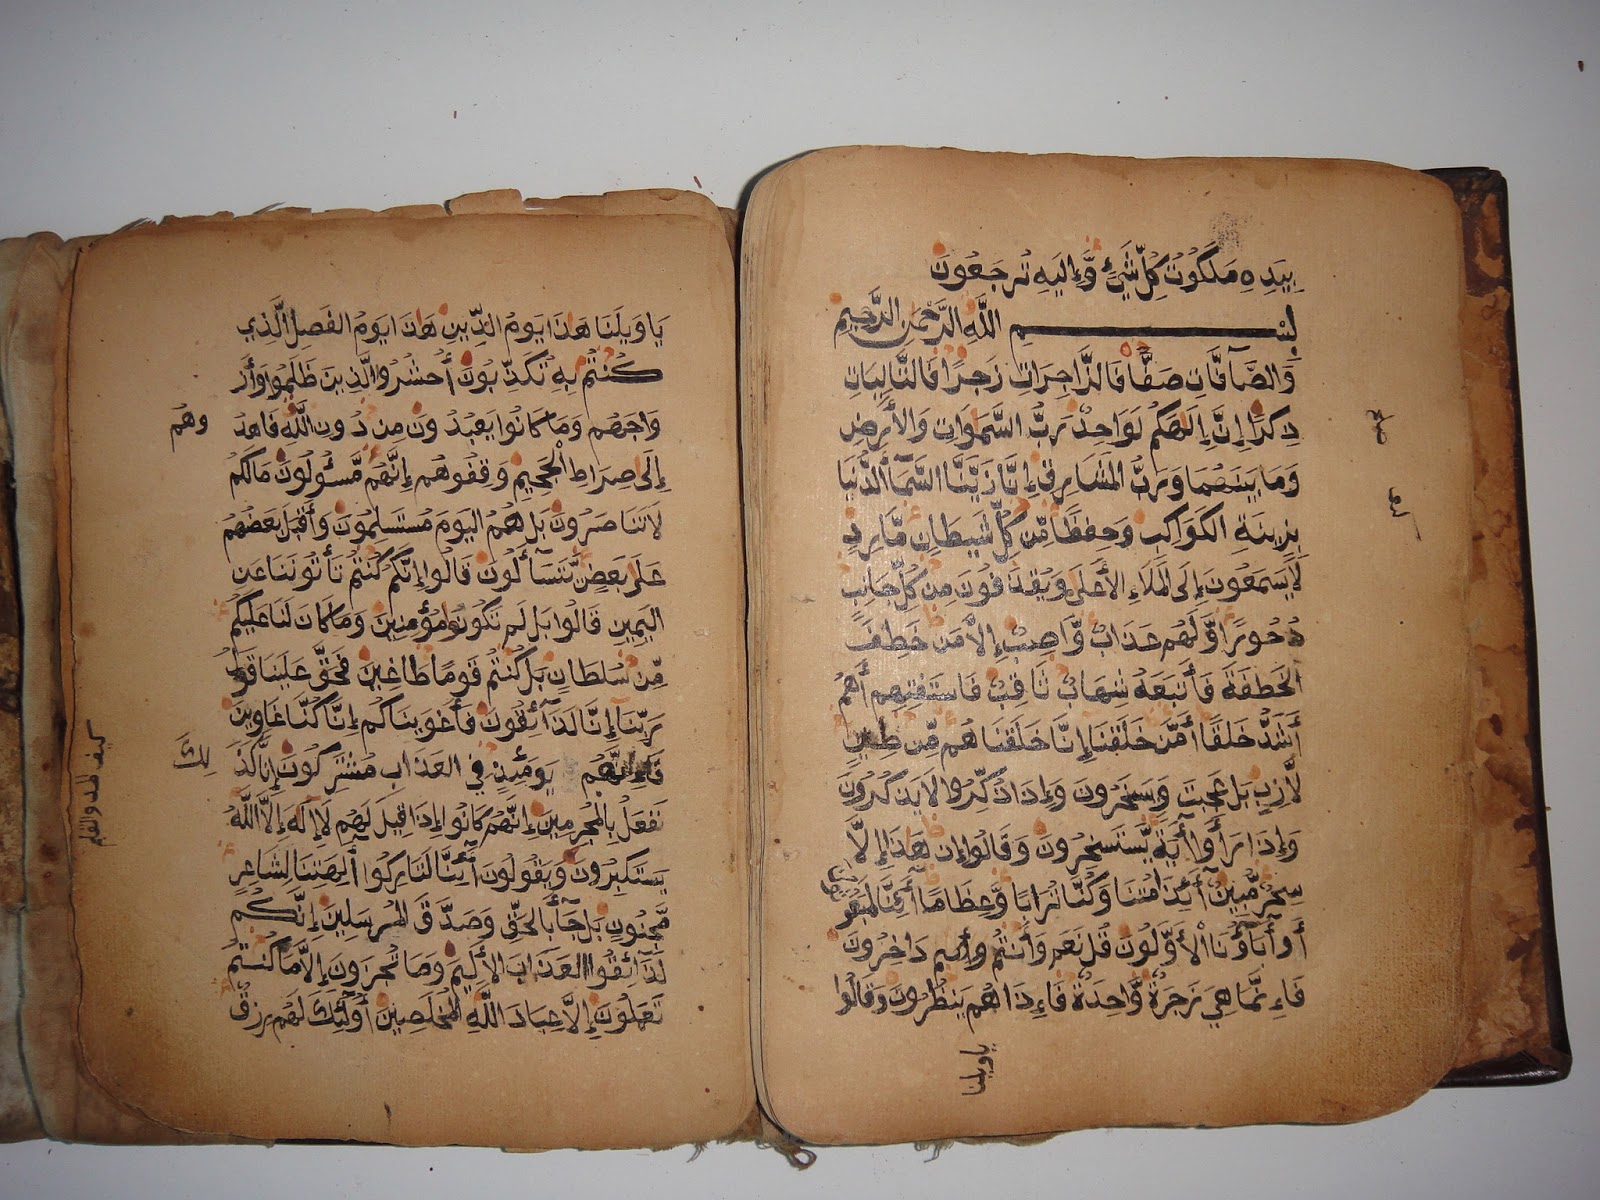 بِيَدِهِ مَلَكُوتُ كُلِّ شَيْءٍ وَّإِلَيْهِ تُرْجَعُونَ
بِسْمِ اللَّهِ الرَّحْمٰنِ الرَّحِيمِ
وَالصَّآفَّاتِ صَفًّا فَالزَّاجِرَاتِ زَجْرًا فَالتَّالِيَاتِ
ذِكْرًا إِنَّ إِلَهَكُمْ لَوَاحِدٌ رَبُّ السَّمَوَاتِ وَالأَرْضِ
وَمَا بَيْنَهُمَا وَرَبُّ المَشَارِقِ إِنَّا زَيَّنَّا السَّمَآءَ الدُّنْيَا
بِزِينَةِ الكَوَاكِبِ وَحِفْظًا مِّن كُلِّ شَيْطَانٍ مَّارِدٍ
لَا يَسَّمَّعُونَ إِلَى المَلَاءِ الأَعْلَى وَيُقْذَفُونَ مِن كُلِّ جَانِبٍ
دُحُورًا وَّلَهُمْ عَذَابٌ وَّاصِبٌ إِلَّا مَنْ خَطِفَ
الخَطْفَةَ فَأَتْبَعَهُ شِهَابٌ ثَاقِبٌ فَاسْتَفْتِهِمْ أَهُمْ
أَشَدُّ خَلْقًا أَم مَّنْ خَلَقْنَا إِنَّا خَلَقْنَاهُم مِّن طِينٍ
لَّازِبٍ بَلْ عَجِبْتَ وَيَسْخَرُونَ وَإِذَا ذُكِّرُوا لَا يَذْكُرُونَ
وَإِذَا رَأَوْا آيَةً يَّسْتَسْخِرُونَ وَقَالُوا إِنْ هَذَا إِلَّا
سِحْرٌ مُّبِينٌ أَئِذَا مِتْنَا وَكُنَّا تُرَابًا وَّعِظَامًا أَئِنَّا لَمَبْعُوثُونَ
أَوَآبَآؤُنَا الأَوَّلُونَ قُلْ نَعَمْ وَأَنتُمْ دَاخِرُونَ
فَإِنَّمَا هِيَ زَجْرَةٌ وَّاحِدَةٌ فَإِذَا هُمْ يَنظُرُونَ وَقَالُوا
ياويلنا
يَا وَيْلَنَا هَذَا يَوْمُ الدِّينِ هَذَا يَوْمُ الفَصْلِ الَّذِي
كُنتُم بِهِ تُكَذِّبُونَ أُحْشُرُوا الَّذِينَ ظَلَمُوا وَأَزْ
وَاجَهُمْ وَمَا كَانُوا يَعْبُدُونَ مِن دُونِ اللَّهِ فَاهْدُ
وهُم
إِلَى صِرَاطِ الجَحِيمِ وَقِفُوهُمْ إِنَّهُم مَّسْؤُلُونَ مَالَكُمْ
لَا تَنَاصَرُونَ بَلْ هُمُ اليَوْمَ مُسْتَسْلِمُونَ وَأَقْبَلَ بَعْضُهُمْ
عَلَى بَعْضٍ يَّتَسَآءَلُونَ قَالُوا إِنَّكُمْ كُنتُمْ تَأْتُونَنَا عَنِ
اليَمِينِ قَالُوا بَل لَّمْ تَكُونُوا مُؤْمِنِينَ وَمَا كَانَ لَنَا عَلَيْكُم
مِّن سُلْطَانٍ بَلْ كُنتُمْ قَوْمًا طَاغِينَ فَحَقَّ عَلَيْنَا قَوْلُ
رَبِّنَا إِنَّا لَذَآئِقُونَ فَأَغْوَيْنَاكُمْ إِنَّا كُنَّا غَاوِينَ
فَإِنَّهُمْ يَوْمَئِذٍ فِي العَذَابِ مُشْتَرِكُونَ إِنَّا كَذَ
لِكَ
نَفْعَلُ بِالمُجْرِمِينَ إِنَّهُمْ كَانُوا إِذَا قِيلَ لَهُمْ لَا إِلَهَ إِلَّا اللَّهُ
يَسْتَكْبِرُونَ وَيَقُولُونَ أَئِنَّا لَتَارِكُوا آلِهَتِنَا لِشَاعِرٍ
مَّجْنُونٍ بَلْ جَآءَ بِالحَقِّ وَصَدَّقَ المُرْسَلِينَ إِنَّكُمْ
لَذَآئِقُوا العَذَابِ الأَلِيمِ وَمَا تُجْزَوْنَ إِلَّا مَا كُنتُمْ
تَعْمَلُونَ إِلَّا عِبَادَ اللَّهِ المُخْلَصِينَ أُولَئِكَ لَهُمْ رِزْقٌ